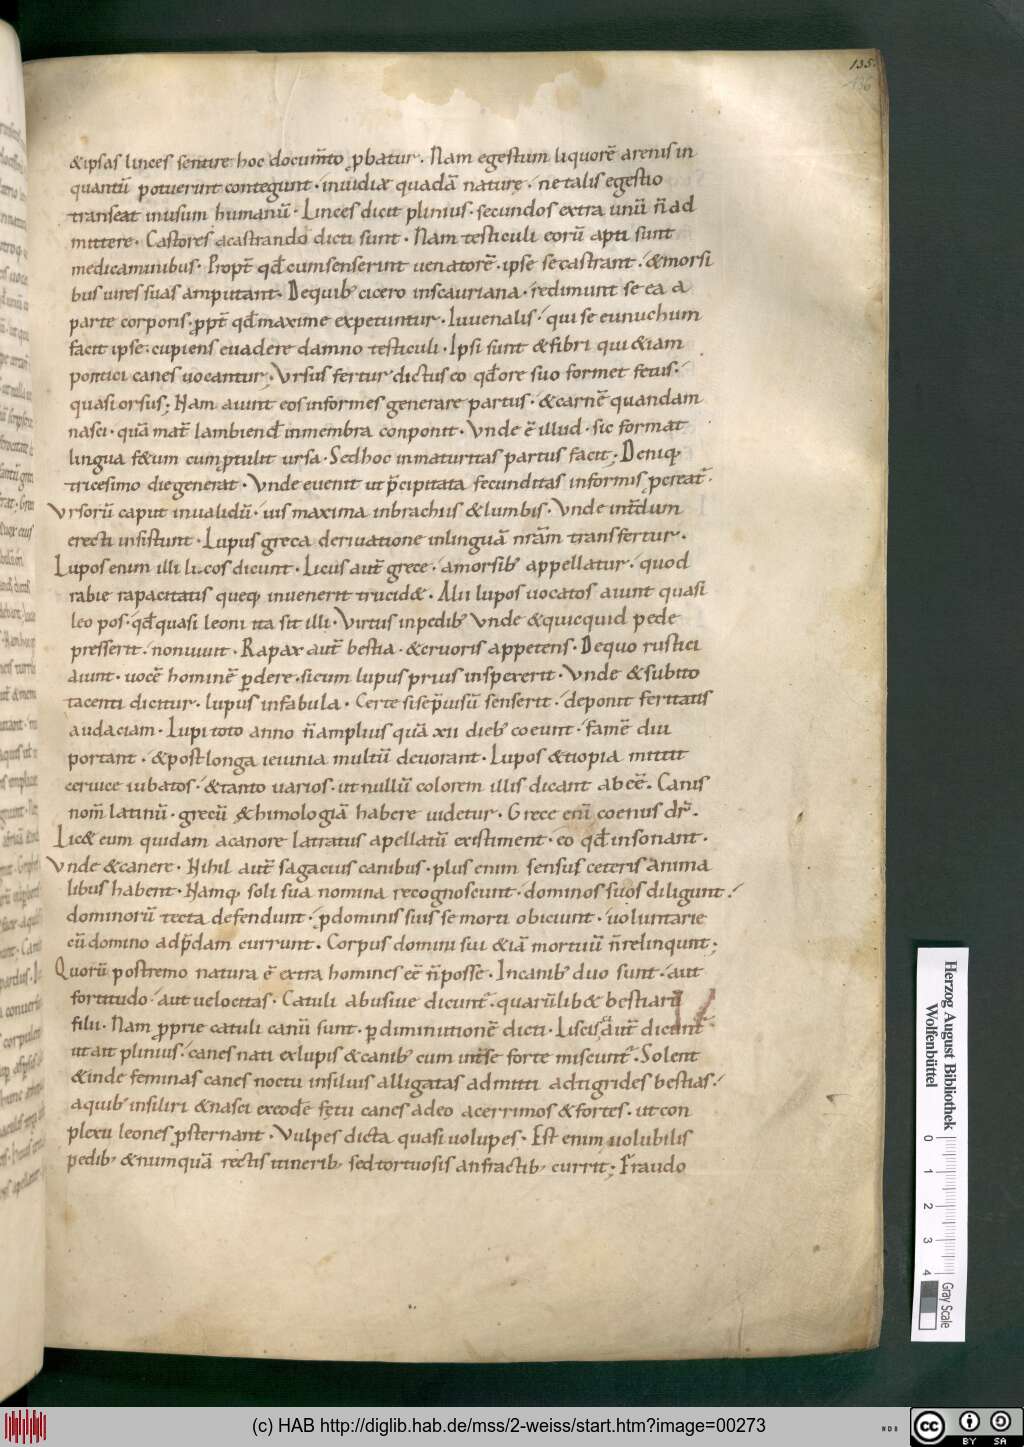 135
136
&ipsas linces sentire hoc documto pbatur. Nam egestum liquorē arenis in
quantū potuerunt contegunt. inuidiæ quadā naturę. ne talis egestio
transeat inusum humanū. Linces dicit plinius. secundos extra unū ñ ad
mittere. Castores acastrando dicti sunt. Nam testiculi eorū apti sunt
medicaminibus. Propt̄ qđ cumsenserint uenatorē. ipse se castrant. &morsi
bus uires suas amputant. Dequib; cicero inscauriana. redimunt se ea a
parte corporis. ꝓpt̄ qđ maxime expetuntur. Iuuenalis. qui se eunuchum
facit ipse. cupiens euadere damno testiculi. Ipsi sunt &fibri qui &iam
pontici canes uocantur. Vrsus fertur dictus eo qđ ore suo formet fetus.
quasi orsus; Nam aiunt eos informes generare partus. &carnē quandam
nasci. quā mat̄ lambiend inmembra conponit. Vnde ē illud. sic format
lingua f&um cumptulit ursa. Sedhoc inmaturitas partus facit; Deniq;
tricesimo die generat. Vnde euenit ut p̄cipitata fecunditas informis pcreat̄.
Vrsorū caput inualidū. uis maxima inbrachiis &lumbis. Vnde int̄dum
erecti insistunt. Lupus greca deriuatione inlinguā nr̄am transfertur.
Lupos enim illi licos dicunt. Licus aut̄ grece. amorsib; appellatur. quod
rabie rapacitatis queq; inuenerit trucid&. Alii lupos uocatos aiunt quasi
leo pos. qđ quasi leoni ita sit illi. Virtus inpedib; Vnde &quicquid pede
presserit. non uiuit. Rapax aut̄ bestia. &cruoris appetens. Dequo rustici
aiunt. uocē hominē ꝑdere. sieum lupus prius inspexerit. Vnde &subito
tacenti dicitur. lupus infabula. Certe sisep̄uisū senserit. deponit feritatis
audaciam. Lupi toto anno ñ amplius quā xii dieb; coeunt. famē diu
portant. &post longa ieiunia multū deuorant. Lupos &iopia mittit
ceruice iubatos. &tanto uarios. ut nullū colorem illis dicant abeē. Canis
nom̄ latinū. grecū &himologiā habere uidetur. Grece eni coenus dr̄.
Lic& eum quidam acanore latratus apellatū existiment. eo qđ insonant.
Vnde &canere. Nihil aut̄ sagacius canibus. plus enim sensus ceteris anima
libus habent. Namq; soli sua nomina recognoscunt. dominos suos diligunt.
dominorū tecta defendunt. ꝓdominis suis se morti obiciunt. uoluntarie
cū domino adp̄dam currunt. Corpus domini sui &iā mortuū ñ relinqunt;
Quorū postremo natura ē extra homines eē ñ posse. In canib; duo sunt. aut
fortitudo. aut uelocitas. Catuli abusiue dicunt̄. quarūlib& bestiarū
filii. Nam ꝓprie catuli canū sunt. ꝑ diminutionē dicti. Liscis aut̄ dicunt
ut ait plinius. canes nati exlupis &canib; cum int̄se forte miscunt̄. Solent
&inde feminas canes noctu insiluis alligatas admitti adtigrides bestias.
aquib; insiliri &nasci exeodē fętu canes adeo acerrimos &fortes. ut con
plexu leones ꝓsternant. Vulpes dicta quasi uolupes. Est enim uolubilis
pedib; &numquā rectis itinerib; sed tortuosis anfractib; currit; Fraudo
Herzog August Bibliothek
Wolfenbüttel
0 1 2 3 4
Gray Scale
(c) HAB http://diglib.hab.de/mss/2-weiss/start.htm?image=00273
cc BY SA